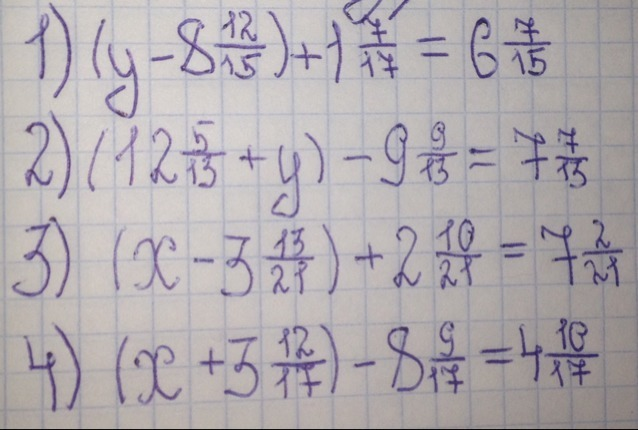 1) (y - 8 12/15) + 1 7/17 = 6 7/15
2) (12 5/13 + y) - 9 9/13 = 7 7/13
3) (x - 3 13/21) + 2 10/21 = 7 2/21
4) (x + 3 12/17) - 8 9/17 = 4 10/17